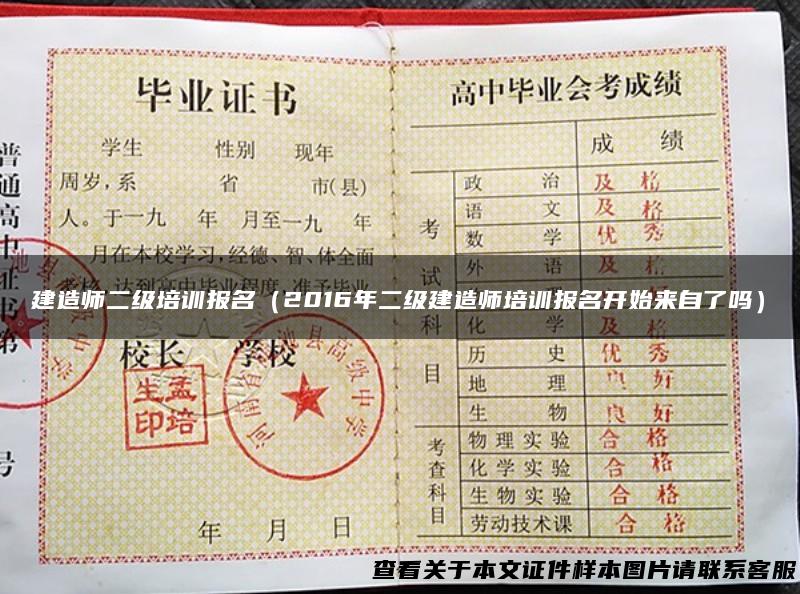 毕业证书
学生 性别 现年
周岁,系 省 市(县)
人。于一九 年 月至一九 年
月在本校学习,经德、智、体全面
考核,达到高中毕业程度,准予毕业
校长 学校
孟培
生印
河南省 池县高级中学
年 月 日
普通高中证书第
号
高中毕业会考成绩
成 绩
考试科目
政 治 及 格
语 文 及 格
数 学 优 秀
外 语 及 格
化 学 及 格
历 史 优 秀
地 理 良 好
生 物 良 好
考查科目
物理实验 合 格
化学实验 合 格
生物实验 合 格
劳动技术课 合 格
建造师二级培训报名（2016年二级建造师培训报名开始来自了吗）
查看关于本文证件样本图片请联系客服